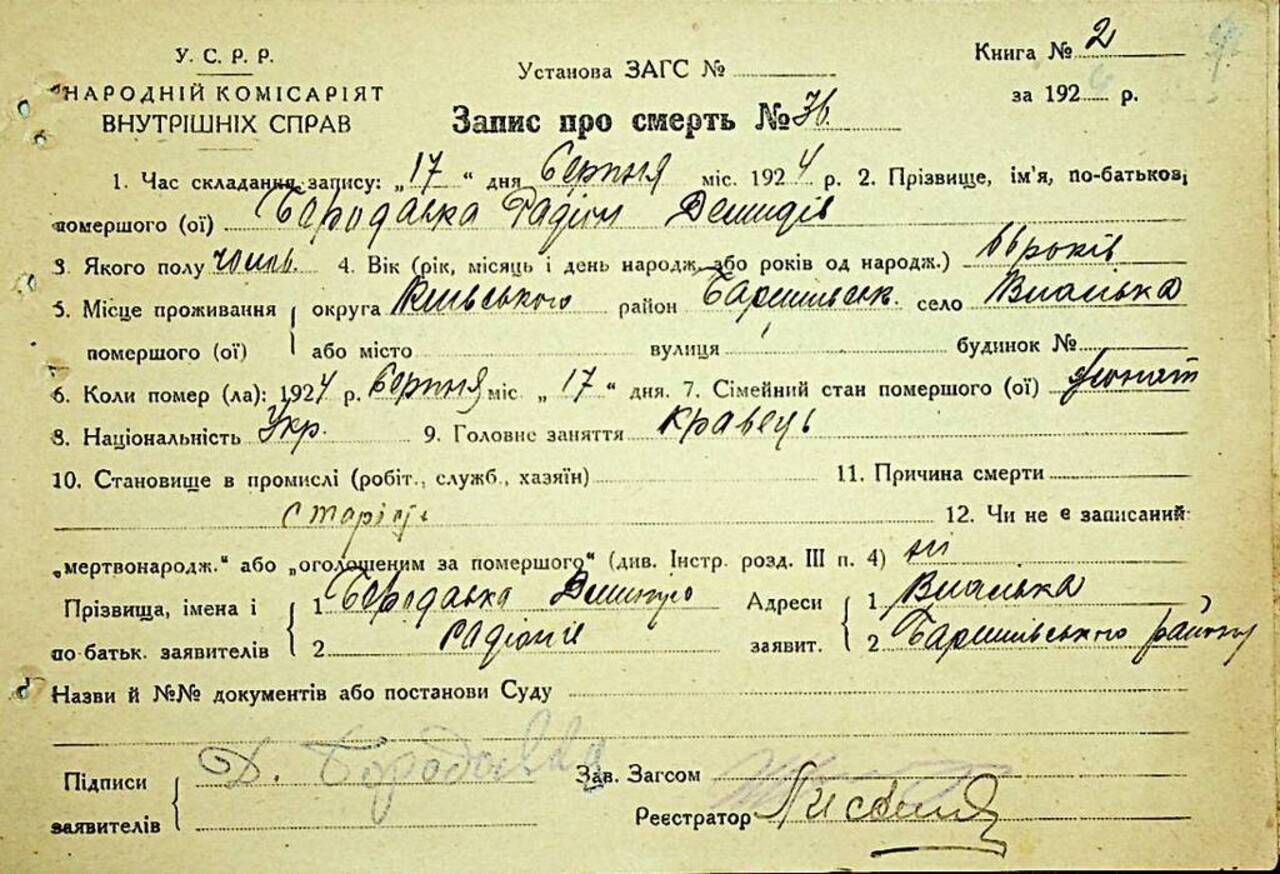 У. С. Р. Р.
НАРОДНІЙ КОМІСАРІЯТ
ВНУТРІШНІХ СПРАВ
Установа ЗАГС №
Запис про смерть № 36.
Книга № 2
за 1926 р.
1. Час складання запису: „17“ дня Серпня міс. 1924 р. 2. Прізвище, ім'я, по-батькові
помершого (ої) Бородавка Радіон Демидів
3. Якого полу чолов. 4. Вік (рік, місяць і день народж. або років од народж.) 66 років
5. Місце проживання округа Київського район Баришівськ. село
помершого (ої) або місто вулиця будинок №
6. Коли помер (ла): 1924 р. Серпня міс „17“ дня. 7. Сімейний стан помершого (ої) жонат
8. Національність Укр. 9. Головне заняття кравець
10. Становище в промислі (робіт., служб., хазяїн) 11. Причина смерти
старість 12. Чи не є записаний:
„мертвонародж.“ або „оголошеним за помершого“ (див. Інстр. розд. III п. 4) ні
Прізвища, імена і 1 Бородавка Дмитро Адреси 1
по батьк. заявителів 2 Радіонів заявит. 2 Баришівського району
Назви й №№ документів або постанови Суду
Підписи Д. Бородавка Зав. Загсом
заявителів Реєстратор